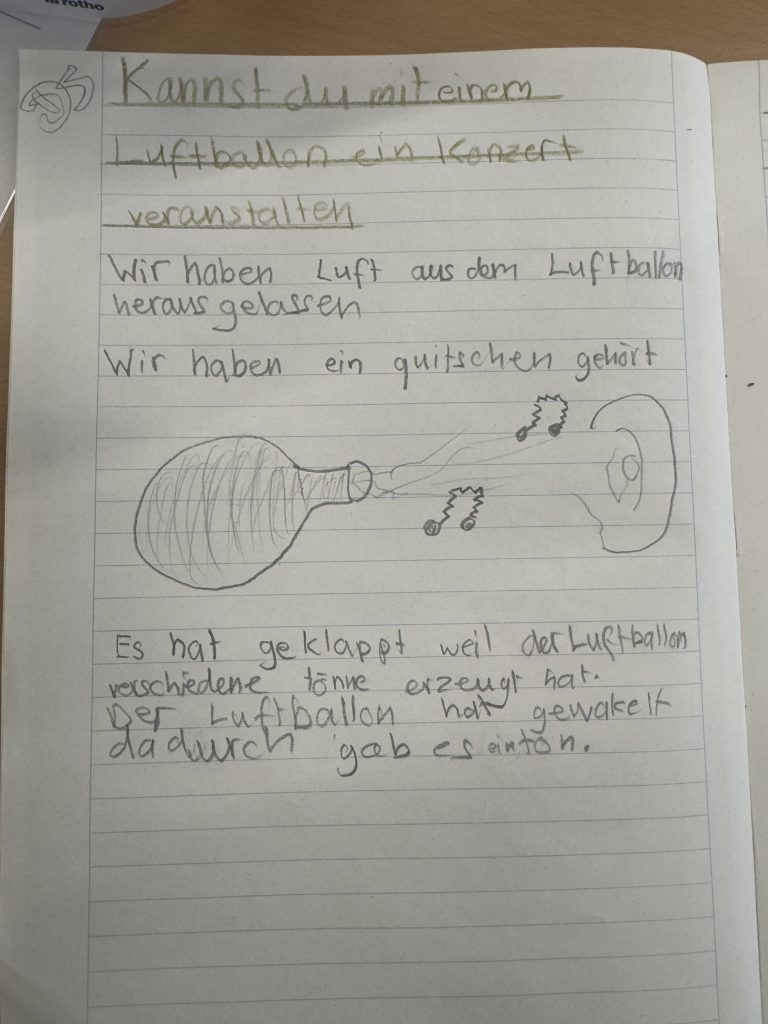 rotho
Kannst du mit einem
Luftballon ein Konzert
veranstalten
Wir haben Luft aus dem Luftballon
heraus gelassen
Wir haben ein quitschen gehört
Es hat geklappt weil der Luftballon
verschiedene tönne erzeugt hat.
Der Luftballon hat gewakelt
dadurch gab es ein tön.